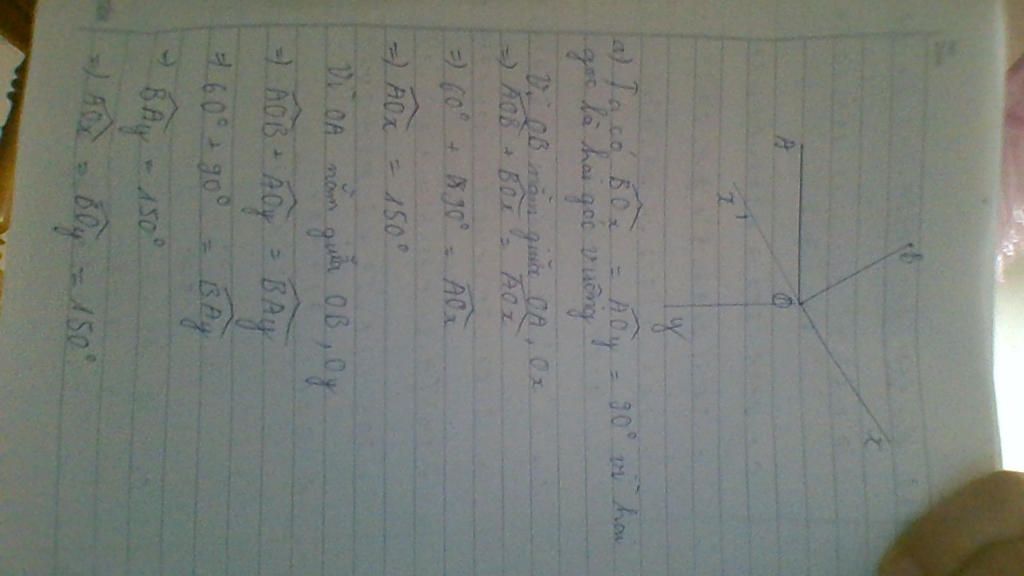 B
x
A
O
x'
y
a) Ta có BOx = AOy = 90° vì hai
góc là hai góc vuông
Vì OB nằm giữa OA, Ox
=> AOB + BOx = AOx
=> 60° + 90° = AOx
=> AOx = 150°
Vì OA nằm giữa OB, Oy
=> AOB + AOy = BAy
=> 60° + 90° = BAy
=> BAy = 150°
=> AOx = BOy = 150°